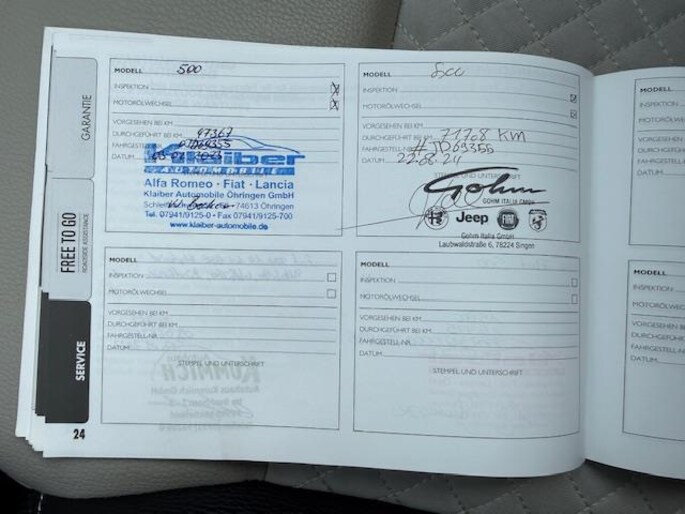 GARANTIE
FREE TO GO
ROADSIDE ASSISTANCE
SERVICE
24
MODELL 500
INSPEKTION X
MOTORÖLWECHSEL X
VORGESEHEN BEI KM
DURCHGEFÜHRT BEI KM 47367
FAHRGESTELL-NR. JD69355
DATUM
Klaiber
AUTOMOBILE
Alfa Romeo · Fiat · Lancia
Klaiber Automobile Öhringen GmbH
74613 Öhringen
Tel. 07941/9125-0 · Fax 07941/9125-700
www.klaiber-automobile.de
MODELL 500
INSPEKTION
MOTORÖLWECHSEL
VORGESEHEN BEI KM
DURCHGEFÜHRT BEI KM 71708 KM
FAHRGESTELL-NR. #JD69355
DATUM 22.08.24
STEMPEL UND UNTERSCHRIFT
Gohm
GOHM ITALIA GmbH
Jeep
FIAT
Gohm Italia GmbH
Laubwaldstraße 6, 78224 Singen
MODELL
INSPEKTION
MOTORÖLWECHSEL
VORGESEHEN BEI KM
DURCHGEFÜHRT BEI KM
FAHRGESTELL-NR.
DATUM
STEMPEL UND UNTERSCHRIFT
MODELL
INSPEKTION
MOTORÖLWECHSEL
VORGESEHEN BEI KM
DURCHGEFÜHRT BEI KM
FAHRGESTELL-NR.
DATUM
STEMPEL UND UNTERSCHRIFT
MODELL
INSPEKTION
MOTORÖLWECHSEL
VORGESEHEN
DURCHGEFÜHRT
FAHRGESTELL-N
DATUM
MODELL
INSPEKTION
MOTORÖLWECH
VORGESEHEN BE
DURCHGEFÜHRT
FAHRGESTELL-N
DATUM